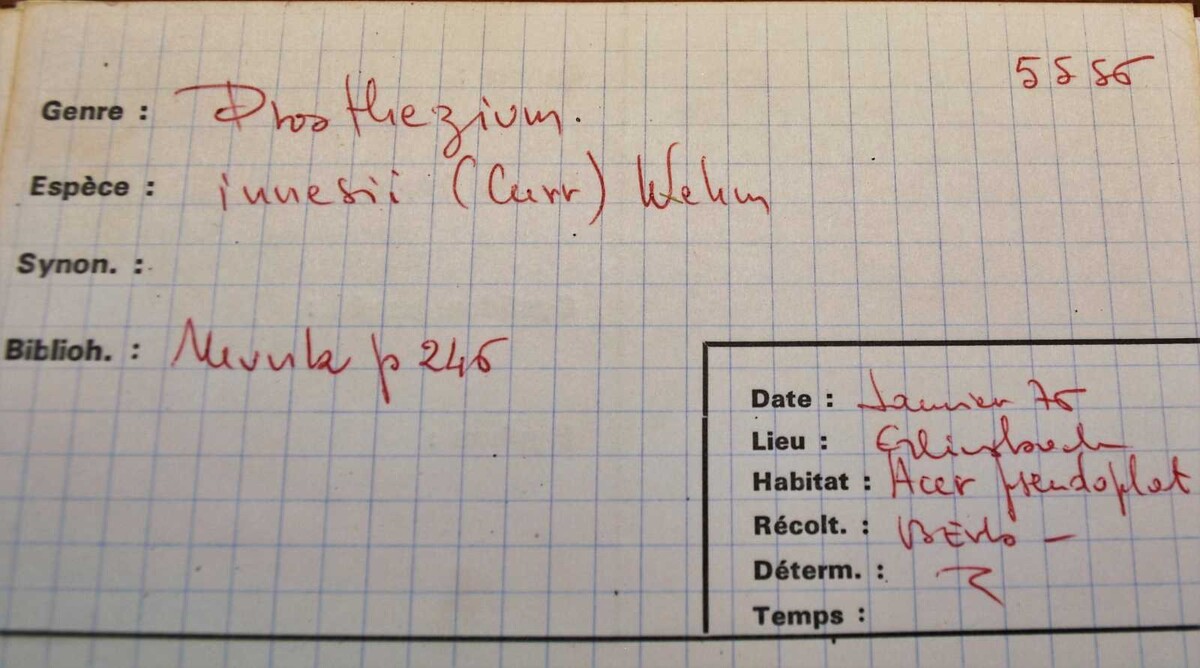 5886
Genre : Prosthezium.
Espèce : innesii (Curr) Wehm
Synon. :
Biblioh. : p 246
Date : Janvier 76
Lieu : Erlinsbach
Habitat : Acer pseudoplat
Récolt. :
Déterm. :
Temps :